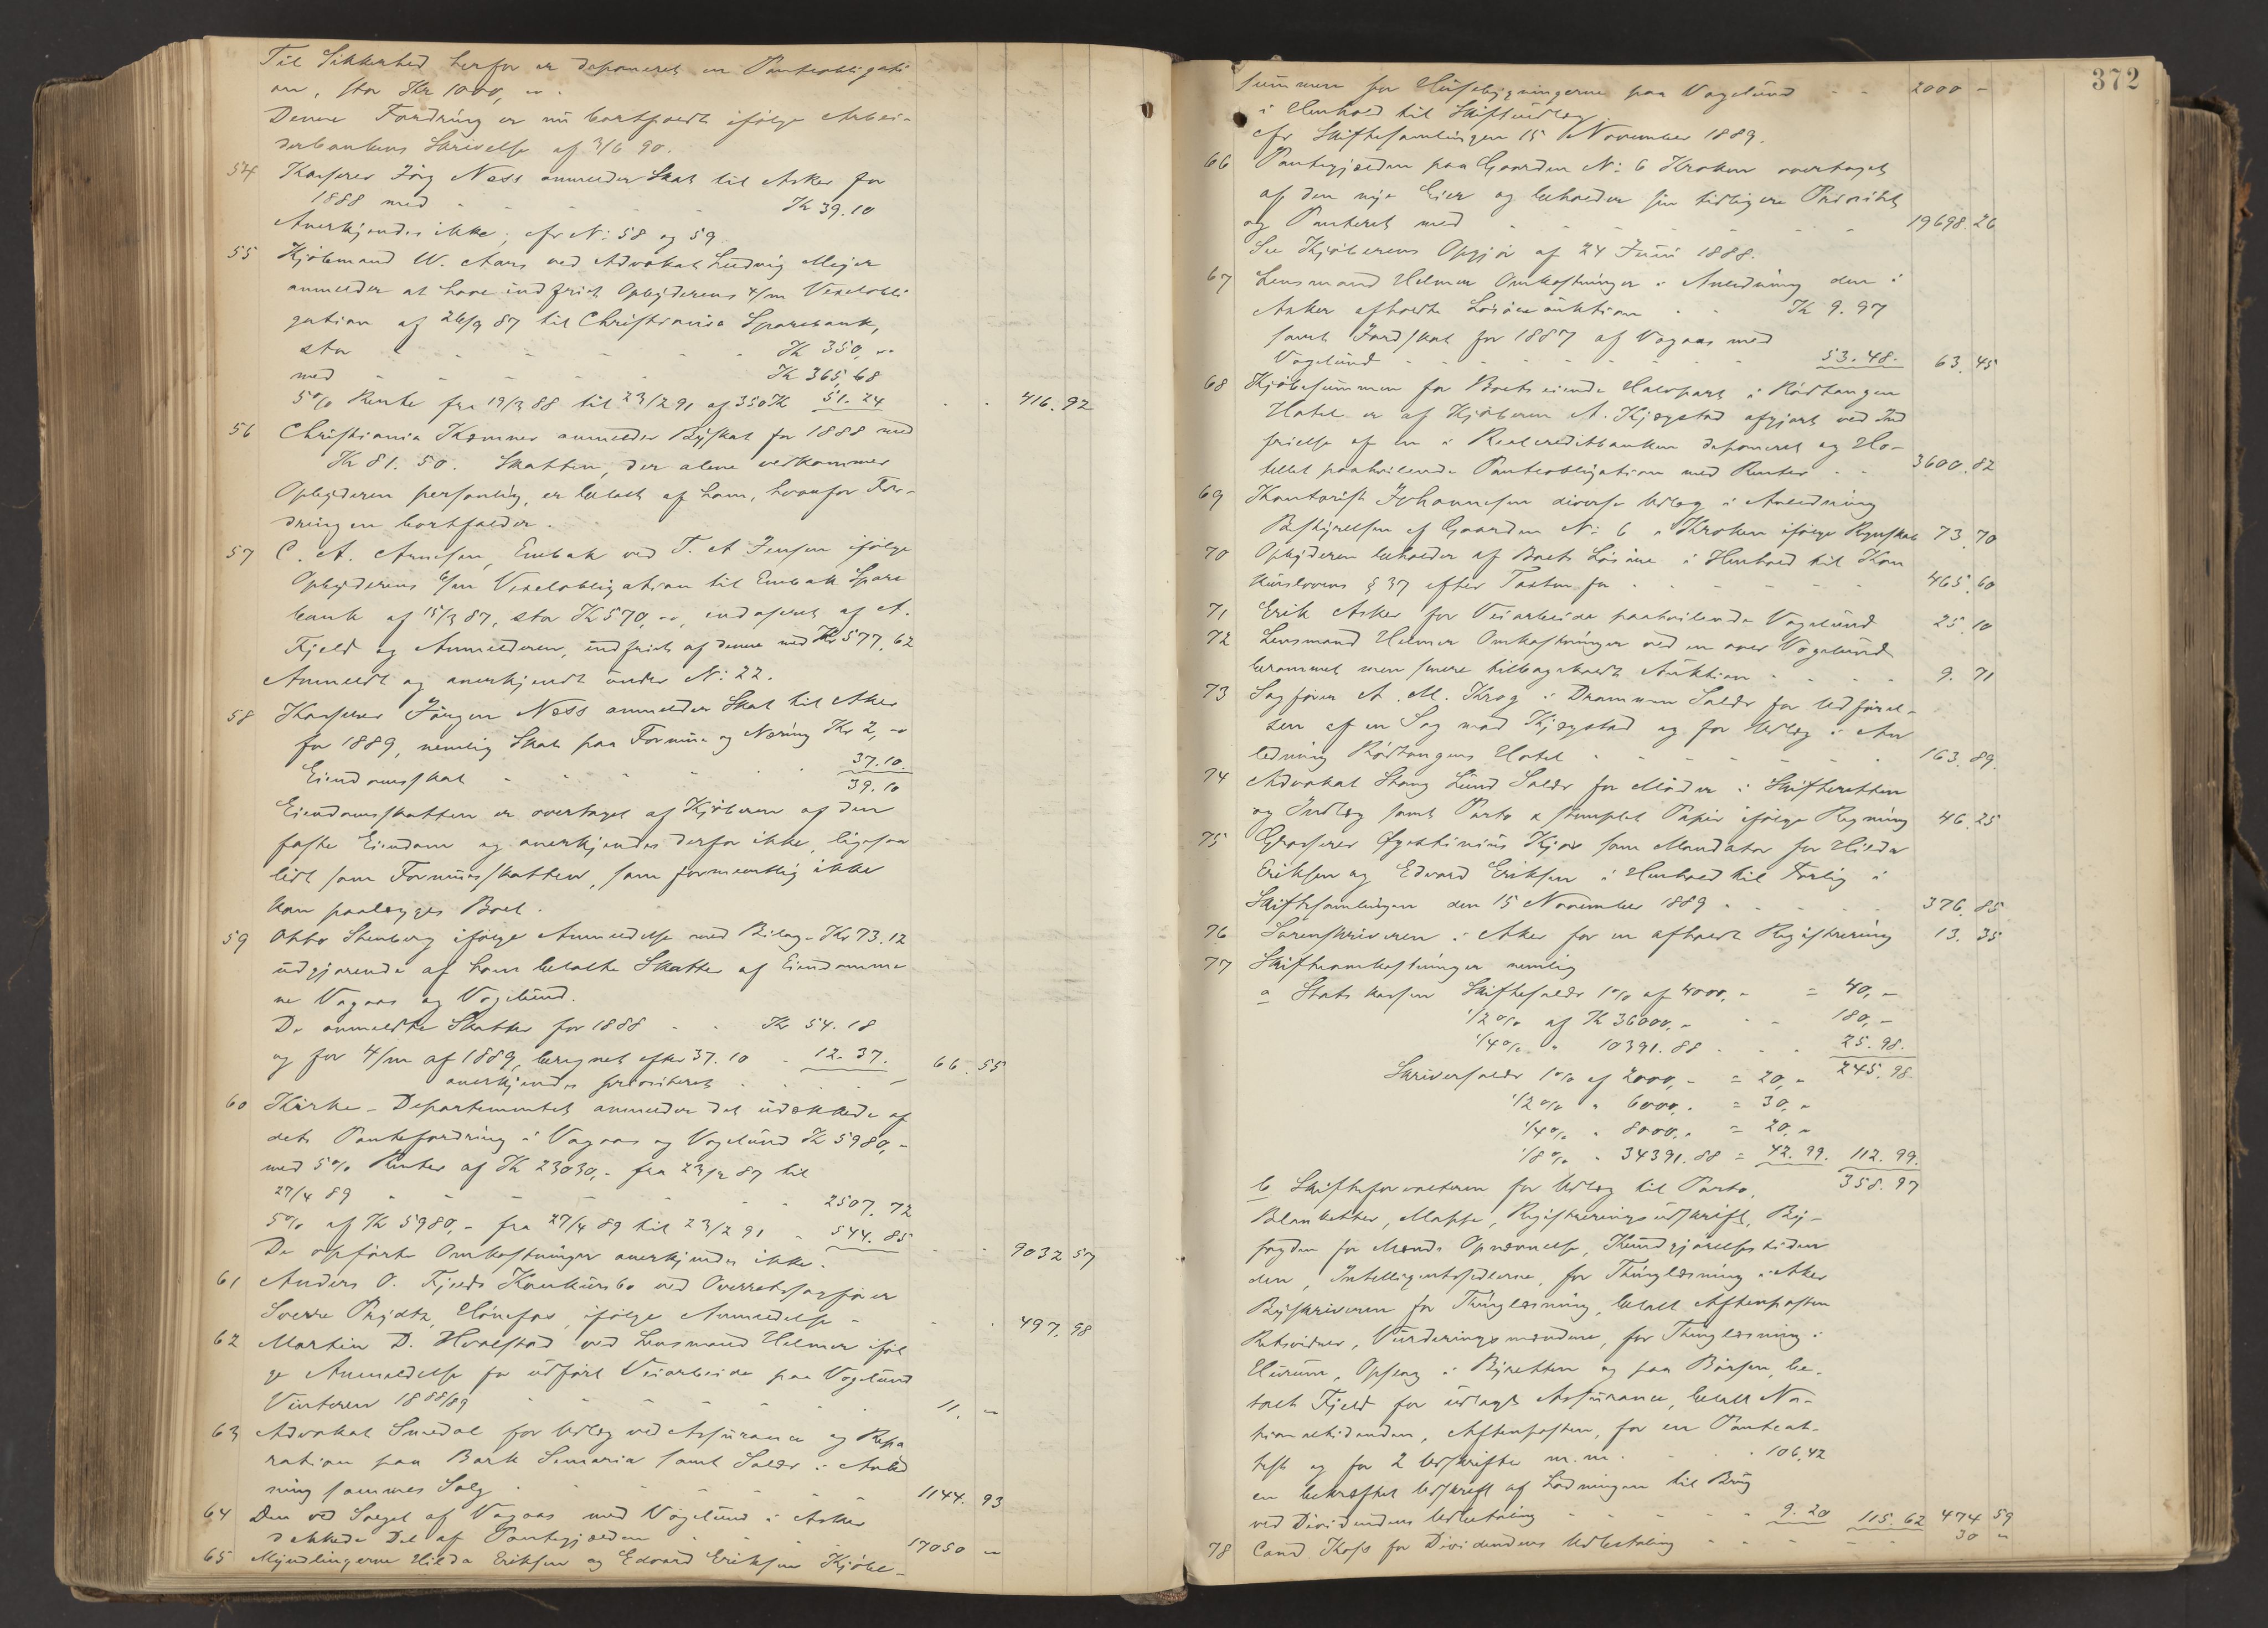 Til Sikkerhed herfor er deponeret en Panteobligati
on, stor Kr 1000, "" .
Denne Fordring er nu bortfaldt ifølge Arbei-
derbankens Skrivelse af 3/6 90.
54 Kasserer Jörg Ness anmelder Skat til Asker for
1888 med - - - - - Kr 39.10
Anerkjendes ikke, cfr N: 58 og 59
55 Kjöbmand W. Aars ved Advokat Ludvig Mejer
anmelder at have indfriet Opbyderens 4/m Vexelobli
gation af 26/9 87 til Christiania Sparebank,
stor - - - - - - Kr 350, ""
med - - - - - Kr 365,68
5% Rente fra 19/3 88 til 23/2 91 af 350 Kr 51.24 - - 416.92
56 Christiania Kæmner anmelder Byskat for 1888 med
Kr 81.50. Skatten, der alene vedkommer
Opbyderen personlig, er betalt af ham, hvorfor For-
dringen bortfalder.
57 C. A. Arnesen, Embak ved T. A Jensen ifølge
Opbyderens 6/m Vexelobligation til Embak Spare
bank af 15/3 87, stor Kr 570, "", endosseret af A.
Fjeld og Anmelderen, indfriet af denne med Kr 577,62
Anmeldt og anerkjendt under N: 22.
58 Kasserer Jörgen Ness anmelder Skat til Asker
for 1889, nemlig Skat paa Formue og Næring Kr 2, ""
Eiendomsskat - - - - - 37.10.
39.10
Eiendomsskatten er overtaget af Kjöberen af den
faste Eiendom og anerkjendes derfor ikke, ligesaa
lidt som Formuesskatten, som formentlig ikke
kan paalægges Boet.
59 Otto Stenberg ifølge Anmeldelse med Bilag Kr 73.12
udgjørende af ham betalte Skatter af Eiendomme
ne Vagaas og Vogelund.
De anmeldte Skatter for 1888 - - Kr 54.18
og for 4/m af 1889, beregnet efter 37.10 - 12.37. 66.55
anerkjendes prioriteret - - - -
60 Kirke-Departementet anmelder det udækkede af
dets Pantefordring i Vagaas og Vogelund Kr 5980,-
med 5% Renter af Kr 23030,- fra 23/2 87 til
27/4 89 - - - - - - 2507.72
5% af Kr 5980,- fra 27/4 89 til 23/2 91 - 544.85
De opførte Omkostninger anerkjendes ikke. - - 9032 57
61 Anders O. Fjelds Konkursbo ved Overretssagfører
Sverre Prydtz, Hönefos, ifølge Anmeldelse - - - 497.98
62 Martin D. Hvalstad ved Lensmand Helmer iføl
ge Anmeldelse for udført Veiarbeide paa Vogelund
Vinteren 1888/89 - - - - - - 11. ""
63 Advokat Smedal for Udlæg ved Assurance og Repa
ration paa Bark Semaria samt Salær i Anled
ning sammes Salg - - - - - - 1144.93
64 Den ved Salget af Vagaas med Vogelund i Asker
dækkede Del af Pantegjælden - - - 17050 ""
65 Myndlingerne Hilda Eriksen og Edvard Eriksen Kjöbe-
372
summen for Husebygningerne paa Vogelund - - 2000 -
i Henhold til Skifteudlæg
cfr Skiftesamlingen 15 November 1889.
66 Pantegjælden paa Gaarden N: 6 Kroken overtaget
af den nye Eier og beholder sin tidligere Prioritet
og Panteret med - - - - - - 19698.26
Se Kjöberens Opgjør af 24 Juni 1888.
67 Lensmand Helmer Omkostninger i Anledning den i
Asker afholdte Lösöreauktion - - Kr 9.97
samt Jordskat for 1887 af Vagaas med
Vogelund - - - - - - 53.48. 63.45
68 Kjöbesummen for Boets eiende Halvpart i Rödtangen
Hotel er af Kjöberen A. Kjøgstad afgjort ved Ind
frielse af en i Realcreditbanken deponeret og Ho-
tellet paahvilende Panteobligation med Renter - - 3600.82
69 Kontorist Johannesen diverse Udlæg i Anledning
Bestyrelsen af Gaarden N: 6 i Kroken ifølge Regnskab 73.70
70 Opbyderen beholder af Boets Lösöre i Henhold til Kon
kurslovens § 37 efter Taxten for - - - - 465.60
71 Erik Asker for Veiarbeide paahvilende Vogelund 25.10
72 Lensmand Helmer Omkostninger ved en over Vogelund
berammet men senere tilbagekaldt Auktion - - - 9.71
73 Sagfører A. M. Krog i Drammen Salær for Udførel-
sen af en Sag mod Kjøgstad og for Udlæg i An
ledning Rödtangens Hotel - - - - - 163.89.
74 Advokat Stang Lund Salær for Möder i Skifteretten
og Indlæg samt Porto & stemplet Papir ifølge Regning 46.25
75 Grosserer Kjær som Mandatar for Hilda
Eriksen og Edvard Eriksen i Henhold til Forlig i
Skiftesamlingen den 15 November 1889 - - - - 376.85
76 Sorenskriveren i Aker for en afholdt Registrering 13.35
77 Skifteomkostninger nemlig
a Statskassen Skiftesalær 1% af 4000,- = 40,-
1/2% af Kr 36000,- - - 180,-
1/4% " 10391.88 - - - 25.98.
245.98.
Skriversalær 1% af 2000,- = 20,-
1/2% " 6000,- = 30,-
1/4% " 8000,- = 20,-
1/8% " 34391.88 = 42.99. 112.99.
b Skifteforvalteren for Udlæg til Porto, 358.97
Blanketter, Mappe, Registreringsudskrift, By-
fogden for Mænds Opnævnelse, Kundgjørelsestiden
den, Intelligentssedlerne, for Thinglæsning i Aker
Byskriveren for Thinglæsning, betalt Aftenposten
Retsvidner, Vurderingsmændene, for Thinglæsning i
Hurum, Opslag i Byretten og paa Börsen, be-
talt Fjeld for udlagt Assurance, betalt Na-
tionaltidenden, Aftenposten, for en Panteat-
test og for 2 Udskrifter m.m. - - - 106,42
en bekræftet Udskrift af Ladningen til Brug
ved Dividendens Udbetaling - - - - 9.20 115.62 474 59
78 Cand. Koss for Dividendens Udbetaling - - - - 30 "